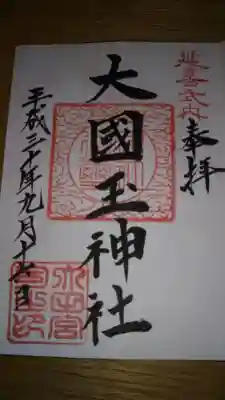 延喜式内
奉拝
大國玉神社
平成三十年九月十六日